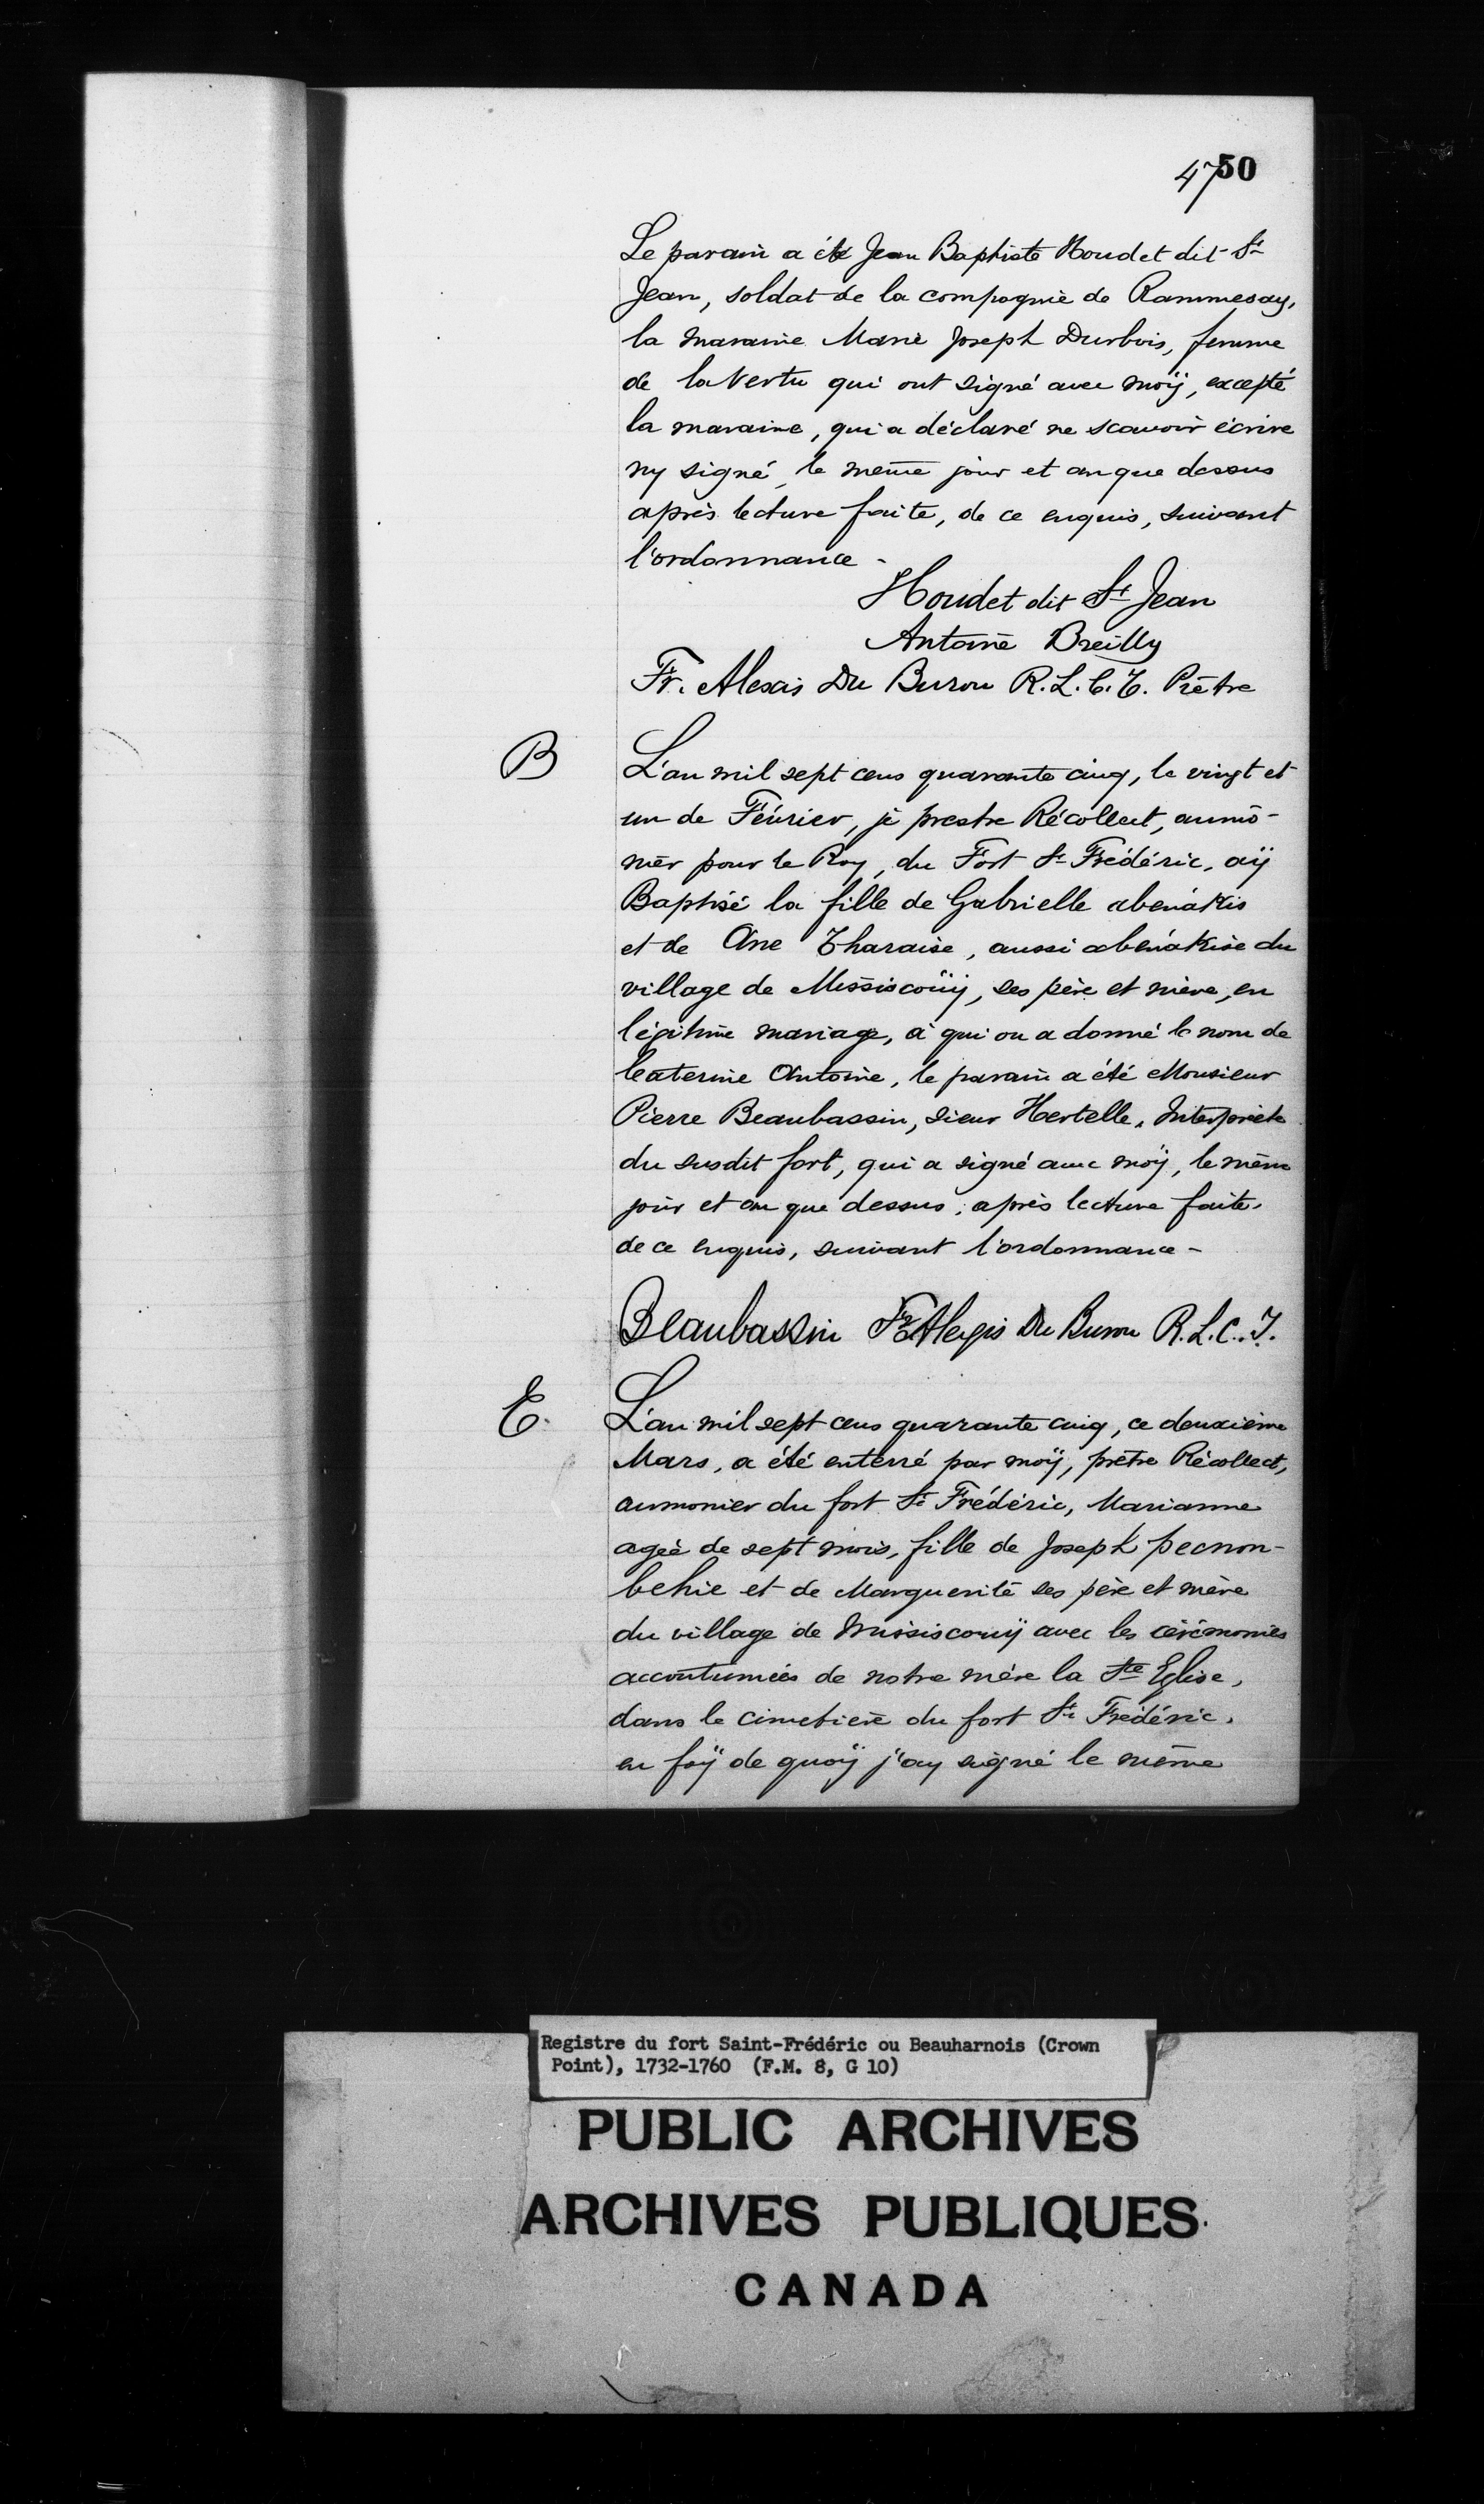 4750
Le parain a été Jean Baptiste Houdet dit St
Jean, soldat de la compagnie de Rammesay,
la maraine Marie Joseph Durbois, femme
de la Vertu qui ont signé avec moÿ, excepté
la maraine, qui a déclaré ne scauoir écrire
ny signé, le même jour et an que dessus
après lecture faite, de ce enquis, suivant
l'ordonnance -
Houdet dit St Jean
Antoine Breilly
Fr. Alexis Du Buron R. L. C. T. Prêtre
B
L'an mil sept cens quarante cinq, le vingt et
un de Féurier, je prestre Récollect, aumô-
nier pour le Roy, du Fort St Frédéric, aÿ
Baptisé la fille de Gabrielle abenakis
et de Ane Tharaise, aussi abénakise du
village de Missiscoüy, ses père et mère, en
légitime mariage, à qui on a donné le nom de
Caterine Antoine, le parain a été Monsieur
Pierre Beaubassin, sieur Hertelle, Interprète
du susdit fort, qui a signé auec moÿ, le même
jour et an que dessus, après lecture faite,
de ce enquis, suivant l'ordonnance -
Beaubassin Fr Alexis Du Buron R. L. C. T.
E.
L'an mil sept cens quarante cinq, ce deuxième
Mars, a été enterré par moÿ, prêtre Récollect,
aumonier du fort St Frédéric, Marianne
agée de sept mois, fille de Joseph pecnon-
behie et de Marguerite ses père et mère
du village de Missiscouÿ avec les cérémonies
accoutumées de notre mère la Ste Eglise,
dans le cimetière du fort St Frédéric,
en foÿ de quoÿ j'ay signé le même
Registre du fort Saint-Frédéric ou Beauharnois (Crown
Point), 1732-1760 (F.M. 8, G 10)
PUBLIC ARCHIVES
ARCHIVES PUBLIQUES
CANADA